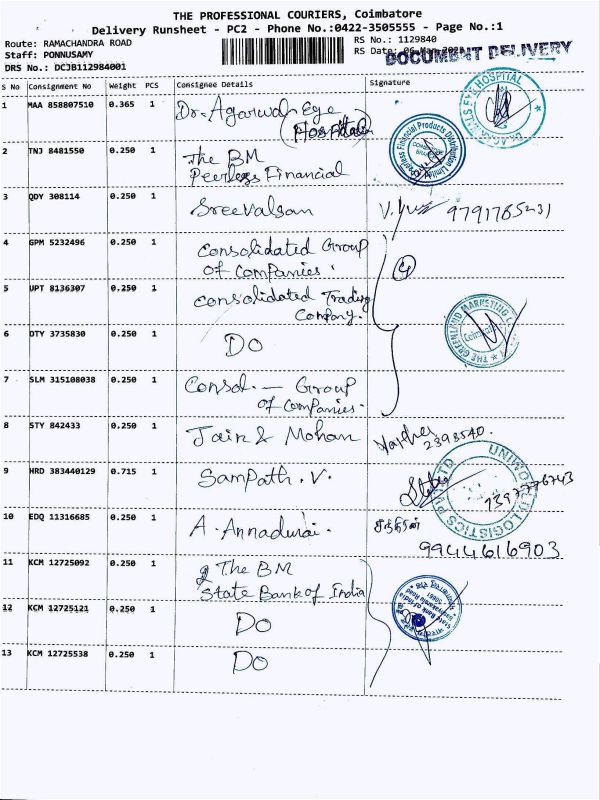 THE PROFESSIONAL COURIERS, Coimbatore
Delivery Runsheet - PC2 - Phone No.:0422-3505555 - Page No.:1
Route: RAMACHANDRA ROAD
RS No.: 1129840
Staff: PONNUSAMY
RS Date:
DOCUMENT DELIVERY
DRS No.: DCJB112984001
S No Consignment No Weight PCS Consignee Details Signature
1 MAA 858807510 0.365 1 Dr. Agarwal Eye
(Hospital)
2 TNJ 8481550 0.250 1 The BM
Peerless Financial
3 QDY 308114 0.250 1 Sreevalsan
4 GPM 5232496 0.250 1 Consolidated Group
of Companies. 4
5 UPT 8136307 0.250 1 Consolidated Trading
Company.
6 DTY 3735830 0.250 1 DO
THE GREENLAND MARKETING
7 SLM 315108038 0.250 1 Consol. - Group
of Companies.
8 STY 842433 0.250 1 Jain & Mohan
9 HRD 383440129 0.715 1 Sampath. V.
UNIWORLD LOGISTICS PVT LTD
10 EDQ 11316685 0.250 1 A. Annadurai.
9944616903
11 KCM 12725092 0.250 1 The BM
State Bank of India
12 KCM 12725121 0.250 1 DO
13 KCM 12725538 0.250 1 DO